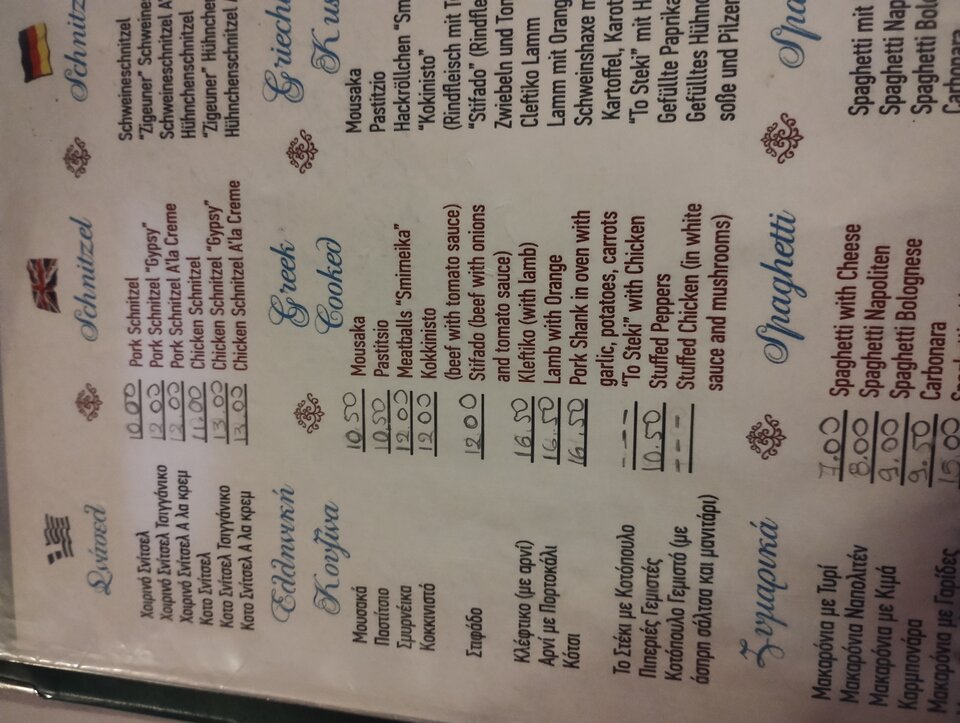 Σνίτσελ
Χοιρινό Σνίτσελ
Χοιρινό Σνίτσελ Τσιγγάνικο
Χοιρινό Σνίτσελ Α λα κρεμ
Κοτο Σνίτσελ
Κοτο Σνίτσελ Τσιγγάνικο
Κοτο Σνίτσελ Α λα κρεμ
Ελληνική
Κουζίνα
Μουσακά
Παστίτσιο
Σμυρνέικα
Κοκκινιστό
Στιφάδο
Κλέφτικο (με αρνί)
Αρνί με Πορτοκάλι
Κότσι
Το Στέκι με Κοτόπουλο
Πιπεριές Γεμιστές
Κοτόπουλο Γεμιστό (με
άσπρη σάλτσα και μανιτάρι)
Ζυμαρικά
Μακαρόνια με Τυρί
Μακαρόνια Ναπολιτέν
Μακαρόνια με Κιμά
Καρμπονάρα
Μακαρόνια με Γαρίδες
Schnitzel
10.00 Pork Schnitzel
12.00 Pork Schnitzel "Gypsy"
12.00 Pork Schnitzel A'la Creme
11.00 Chicken Schnitzel
13.00 Chicken Schnitzel "Gypsy"
13.00 Chicken Schnitzel A'la Creme
Greek
Cooked
10.50 Mousaka
10.50 Pastitsio
12.00 Meatballs "Smirneika"
12.00 Kokkinisto
(beef with tomato sauce)
12.00 Stifado (beef with onions
and tomato sauce)
16.50 Kleftiko (with lamb)
16.50 Lamb with Orange
16.50 Pork Shank in oven with
garlic, potatoes, carrots
--- "To Steki" with Chicken
10.50 Stuffed Peppers
--- Stuffed Chicken (in white
sauce and mushrooms)
Spaghetti
7.00 Spaghetti with Cheese
8.00 Spaghetti Napoliten
9.00 Spaghetti Bolognese
9.50 Carbonara
15.00
Schnitz
Schweineschnitzel
"Zigeuner" Schweines
Schweineschnitzel A
Hühnchenschnitzel
"Zigeuner" Hühnchen
Hühnchenschnitzel A
Griech
Kü
Mousaka
Pastitzio
Hackröllchen "Sm
"Kokinisto"
(Rindfleisch mit T
"Stifado" (Rindfle
Zwiebeln und Tom
Cleftiko Lamm
Lamm mit Orang
Schweinshaxe m
Kartoffel, Karot
"To Steki" mit H
Gefüllte Paprika
Gefülltes Hühn
soße und Pilzen
Spa
Spaghetti mit
Spaghetti Nap
Spaghetti Bolo
Carbonara